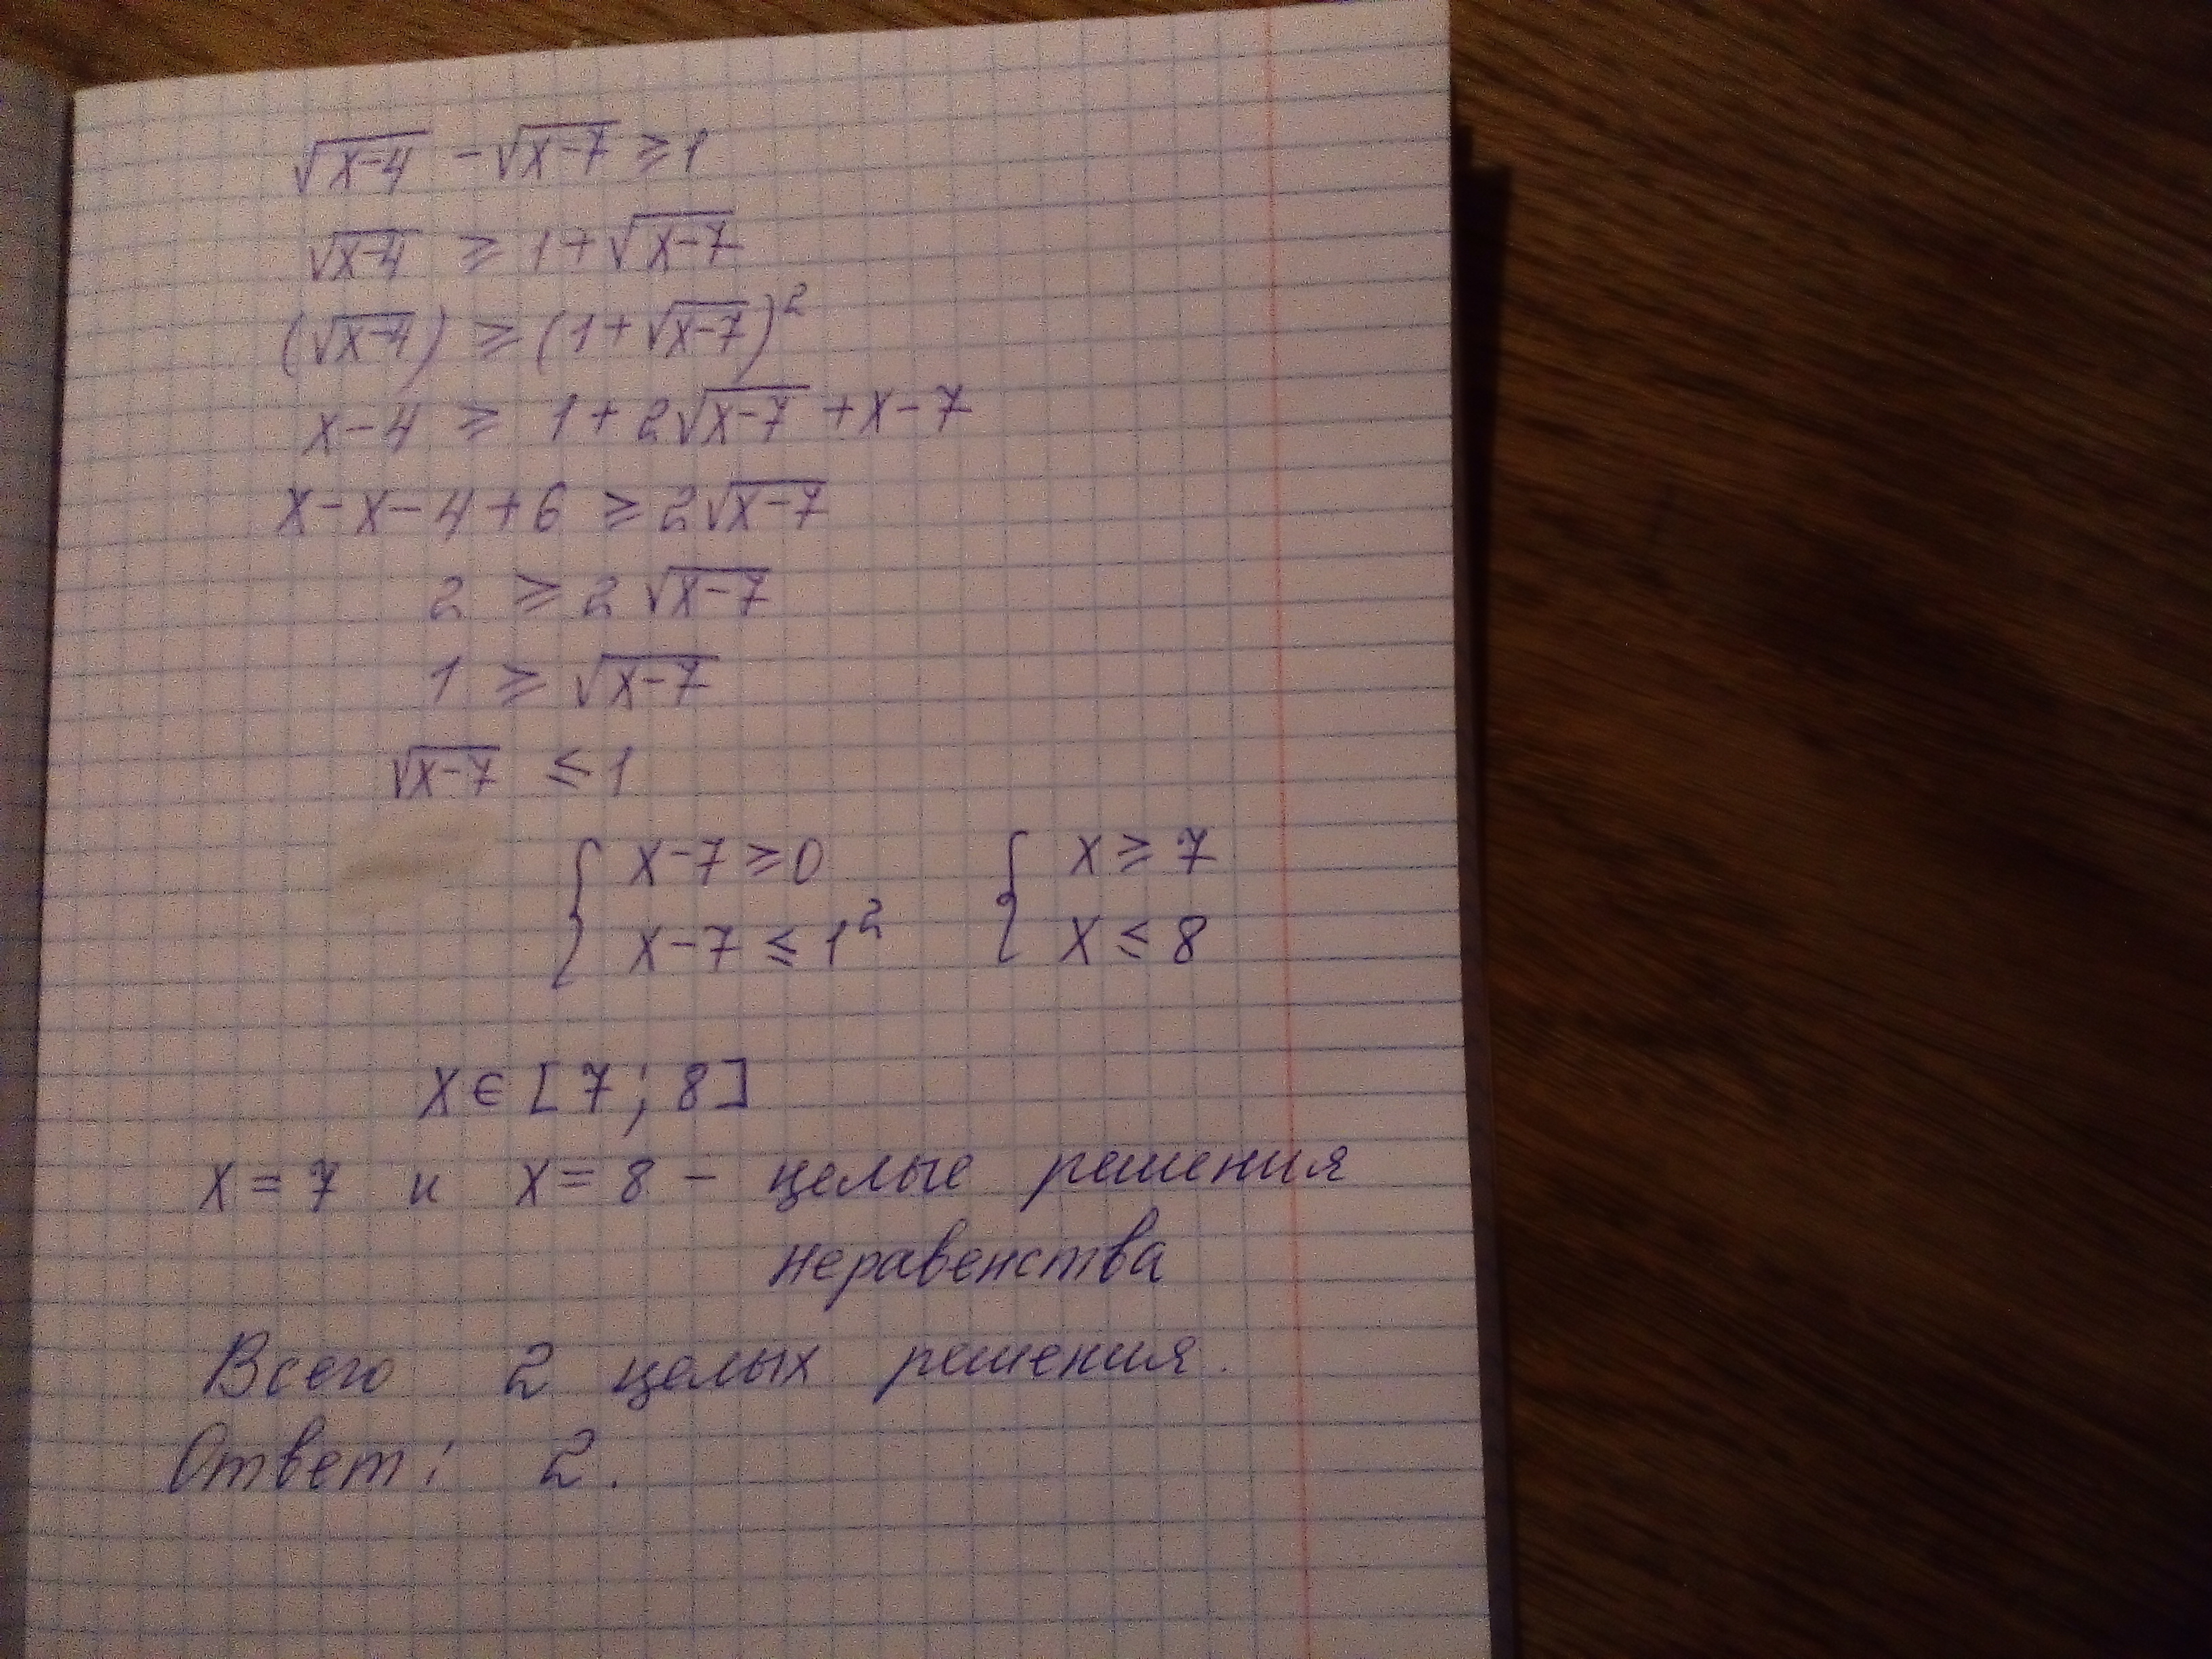 √(x-4) - √(x-7) ≥ 1
√(x-4) ≥ 1+√(x-7)
(√(x-4)) ≥ (1+√(x-7))²
x-4 ≥ 1+2√(x-7) +x-7
x-x-4+6 ≥ 2√(x-7)
2 ≥ 2√(x-7)
1 ≥ √(x-7)
√(x-7) ≤ 1
{ x-7≥0 { x≥7
x-7≤1² x≤8
x∈[7;8]
x=7 и x=8 - целые решения
неравенства
Всего 2 целых решения.
Ответ: 2.